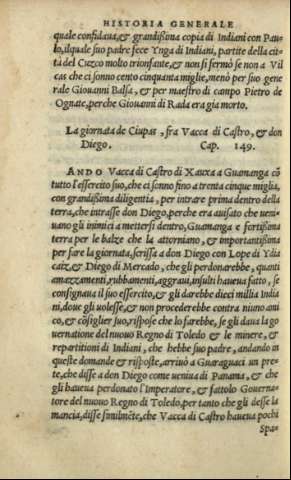 HISTORIA GENERALE
quale confidaua, & grandissima copia di Indiani con Pau-
lo, ilquale suo padre fece Ynga di Indiani, partite della cit-
tà del Cuzco molto trionfante, & non si fermò se non a Vil
cas che ci sonno cento cinquanta miglie, menò per suo gene
rale Giouanni Balsa, & per maestro di campo Pietro de
Ognate, perche Giouanni di Rada era gia morto.
La giornata de Ciupas, fra Vacca di Castro, & don
Diego. Cap. 149.
ANDO Vacca di Castro di Xauxa a Guamanga cõ
tutto l'essercito suo, che ci sonno fino a trenta cinque miglia,
con grandissima diligentia, per intrare prima dentro della
terra, che intrasse don Diego, perche era auisato che ueni-
uano gli inimici a mettersi dentro, Guamanga e fortissima
terra per le balze che la attorniano, & importantissima
per fare la giornata, scrissa a don Diego con Lope di Ydia
caiz, & Diego di Mercado, che gli perdonarebbe, quanti
amazzamenti, rubbamenti, aggraui, insulti haueua fatto, se
consignaua il suo essercito, & gli darebbe dieci millia India
ni, doue gli uolesse, & non procederebbe contra niuno ami
co, & cõsiglier suo, rispose che lo farebbe, se gli daua la go
uernatione del nuouo Regno di Toledo & le minere, &
repartitioni di Indiani, che hebbe suo padre, andando in
queste domande & risposte, arriuò a Guaraguaci un pre-
te, che disse a don Diego come ueniua di Panama, & che
gli haueua perdonato l'Imperatore, & fattolo Gouerna-
tore del nuouo Regno di Toledo, per tanto che gli desse la
mancia, disse similmẽte, che Vacca di Castro haueua pochi
Spa-